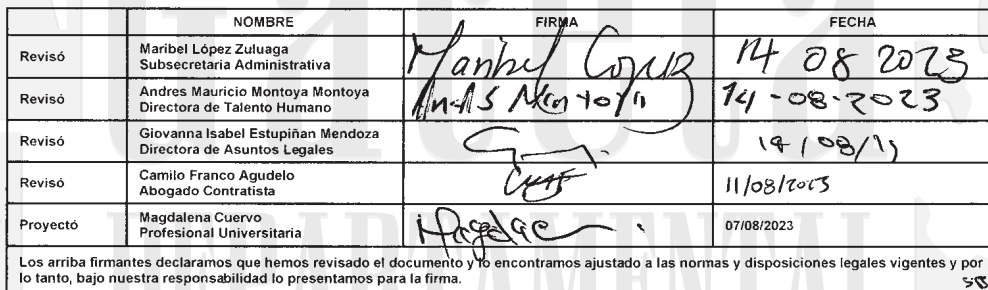 NOMBRE FIRMA FECHA
Revisó Maribel López Zuluaga
Subsecretaria Administrativa Maribel López 14 08 2023
Revisó Andres Mauricio Montoya Montoya
Directora de Talento Humano Andrés Montoya 14-08-2023
Revisó Giovanna Isabel Estupiñan Mendoza
Directora de Asuntos Legales
Revisó Camilo Franco Agudelo
Abogado Contratista 11/08/2023
Proyectó Magdalena Cuervo
Profesional Universitaria 07/08/2023
Los arriba firmantes declaramos que hemos revisado el documento y lo encontramos ajustado a las normas y disposiciones legales vigentes y por
lo tanto, bajo nuestra responsabilidad lo presentamos para la firma.